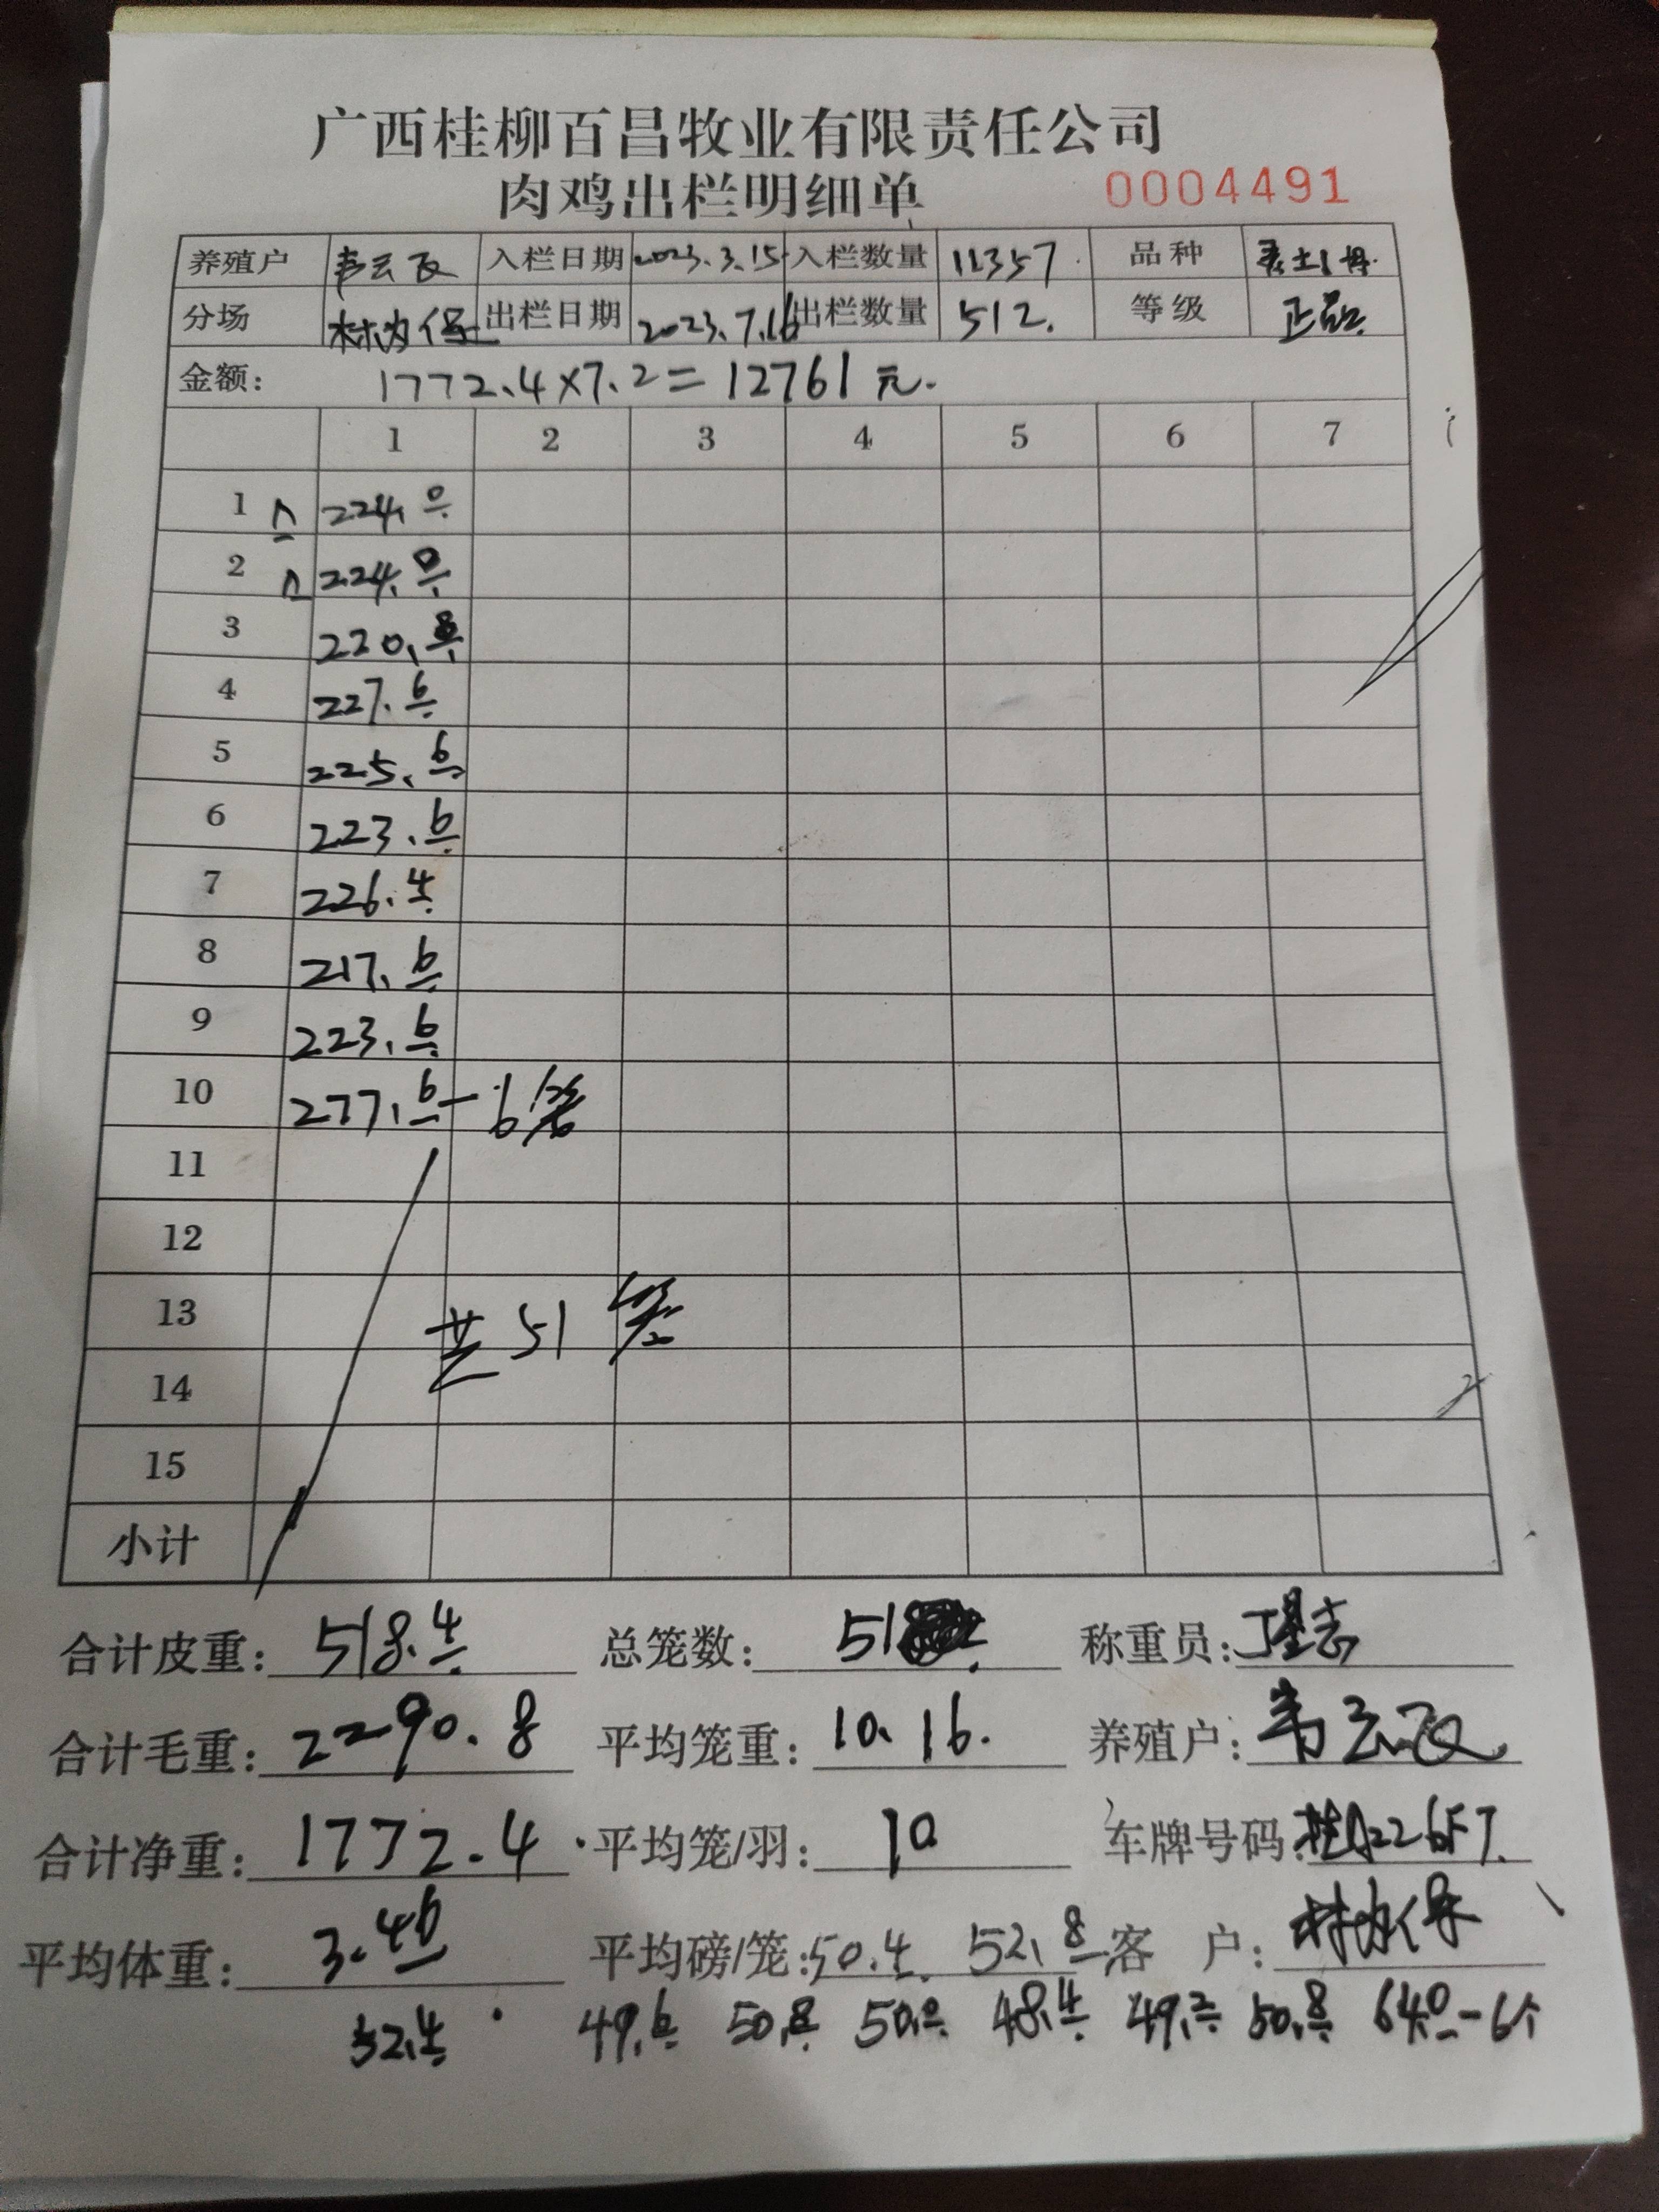 广西桂柳百昌牧业有限责任公司
肉鸡出栏明细单 0004491
养殖户 韦云飞 入栏日期 2023.3.15 入栏数量 11357 品种
分场 林为保 出栏日期 2023.7.16 出栏数量 512. 等级 正品
金额: 1772.4×7.2=12761元.
1 2 3 4 5 6 7
1 224.0
2 224.0
3 220.8
4 227.6
5 225.6
6 223.6
7 226.4
8 217.6
9 223.6
10 277.6-6笼
11
12
13 共51笼
14
15
小计
合计皮重: 518.4 总笼数: 51 称重员:
合计毛重: 2290.8 平均笼重: 10.16. 养殖户: 韦云飞
合计净重: 1772.4 平均笼/羽: 10 车牌号码: 桂A226F7.
平均体重: 3.46 平均磅/笼: 50.4 52.8 客 户: 林为保
52.4 49.6 50.8 50.0 48.4 49.2 50.8 64.0-6个